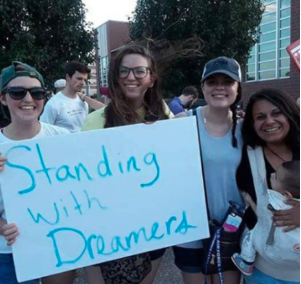 Standing
with
Dreamers